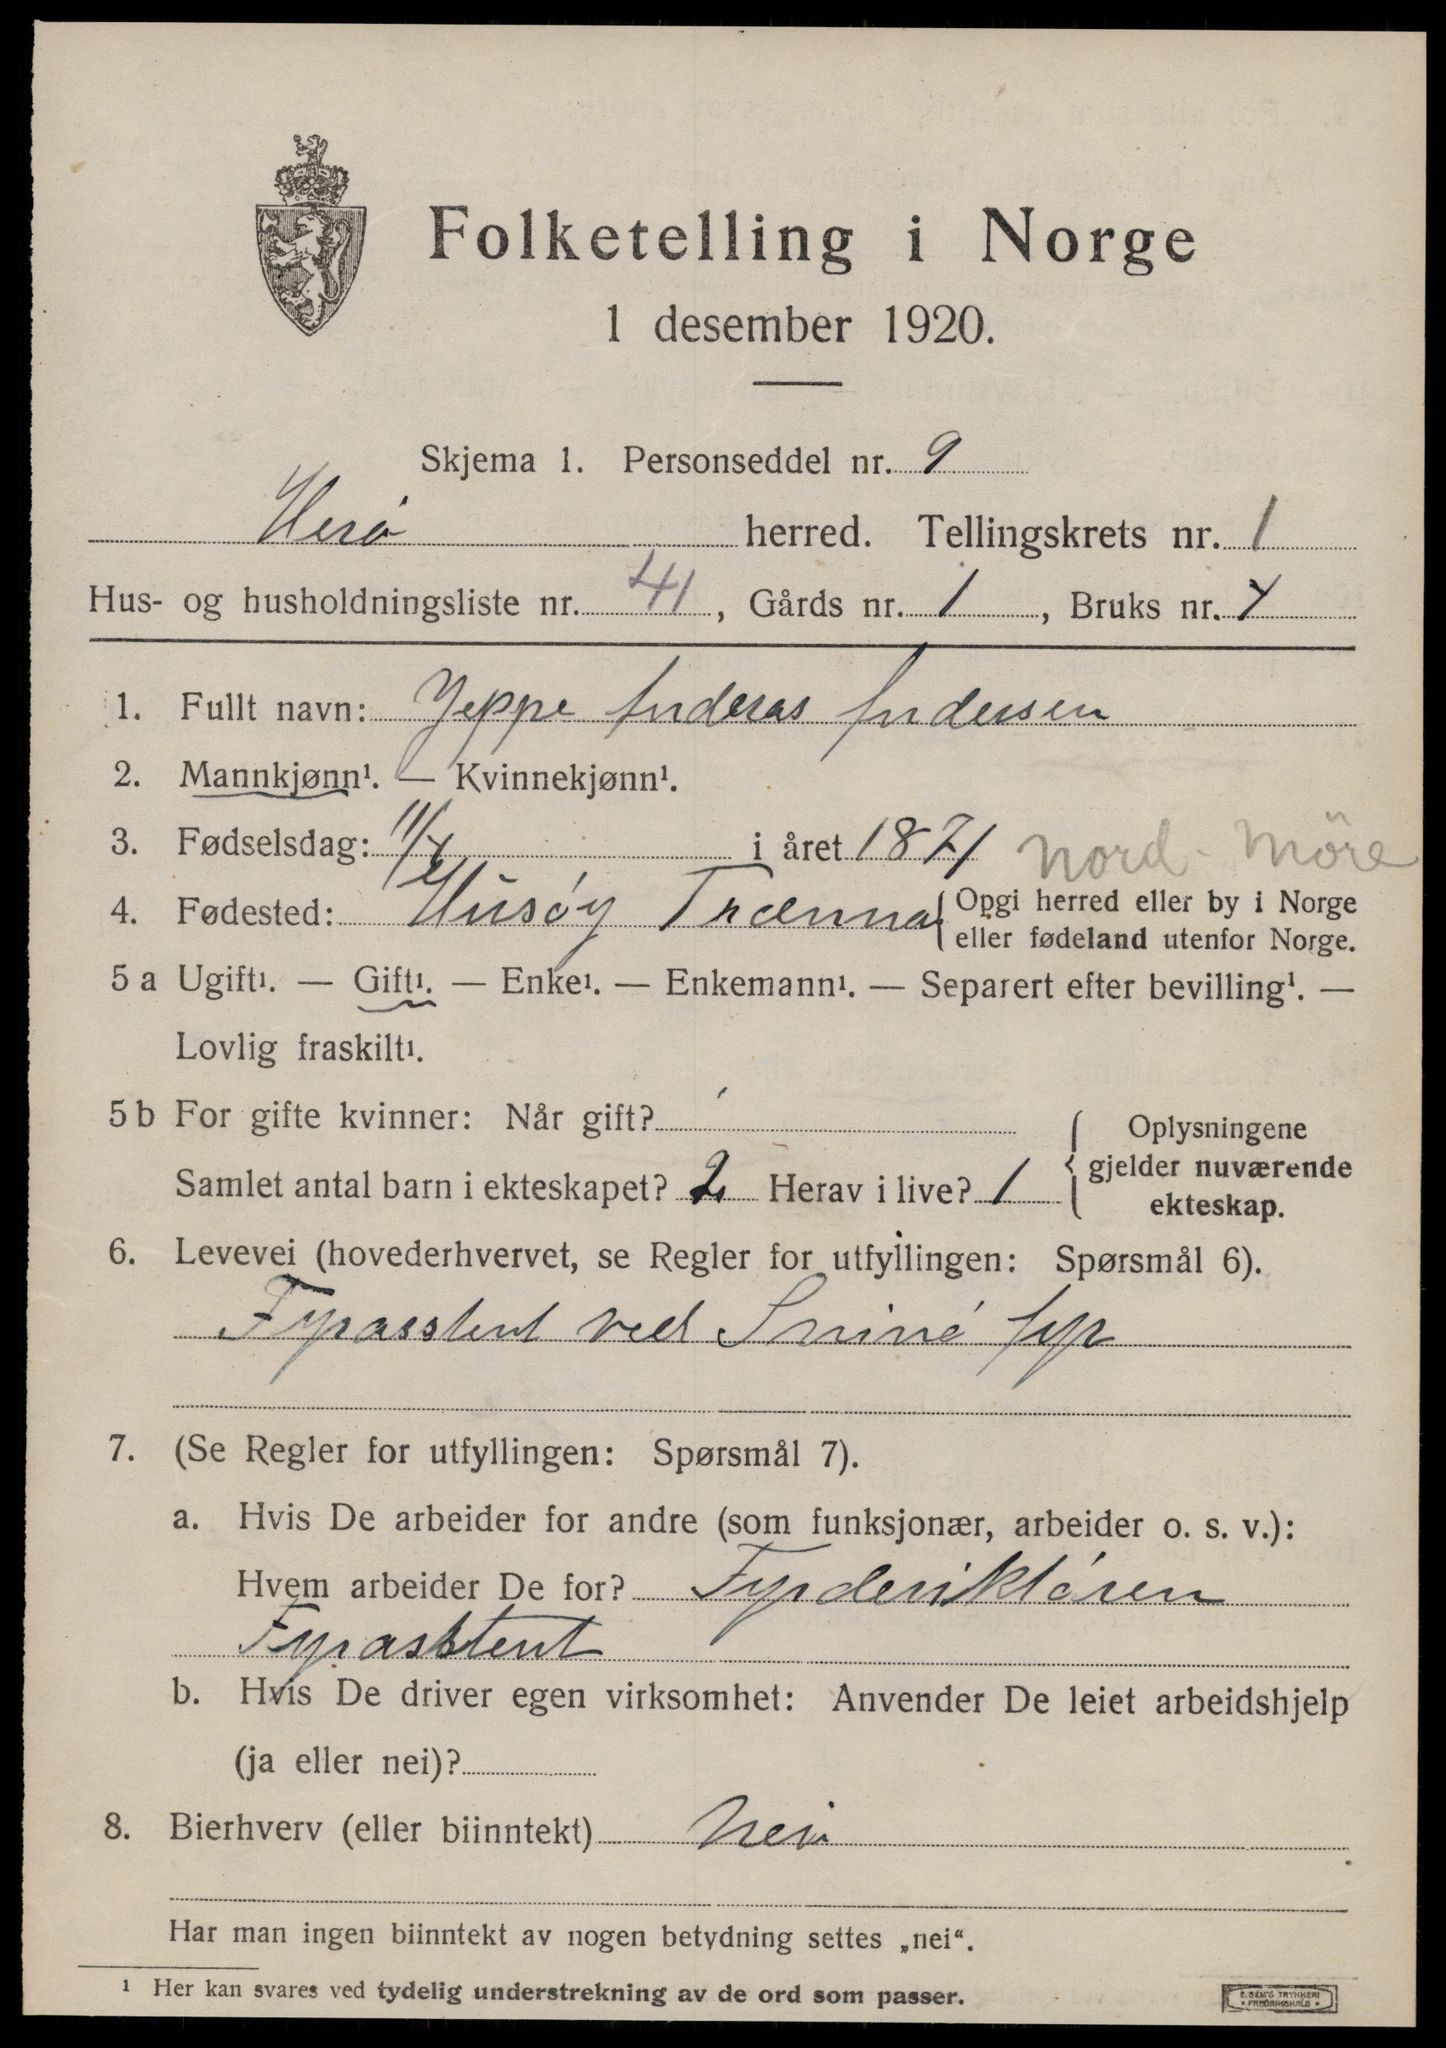 Folketelling i Norge
1 desember 1920.
Skjema 1. Personseddel nr. 9
Herö herred. Tellingskrets nr. 1
Hus- og husholdningsliste nr. 41, Gårds nr. 1, Bruks nr. 4
1. Fullt navn: Jeppe Anderas Andersen
2. Mannkjønn¹. — Kvinnekjønn¹.
3. Fødselsdag: 11/4 i året 1871 Nord-Möre
4. Fødested: Husøy Trænna {Opgi herred eller by i Norge
eller fødeland utenfor Norge.
5 a Ugift¹. — Gift¹. — Enke¹. — Enkemann¹. — Separert efter bevilling¹. —
Lovlig fraskilt¹.
5 b For gifte kvinner: Når gift?
Samlet antal barn i ekteskapet? 2 Herav i live? 1
Oplysningene
gjelder nuværende
ekteskap.
6. Levevei (hovederhvervet, se Regler for utfyllingen: Spørsmål 6).
Fyrasstent ved fyr
7. (Se Regler for utfyllingen: Spørsmål 7).
a. Hvis De arbeider for andre (som funksjonær, arbeider o. s. v.):
Hvem arbeider De for? Fyrderiktóren
Fyrasstent
b. Hvis De driver egen virksomhet: Anvender De leiet arbeidshjelp
(ja eller nei)?
8. Bierhverv (eller biinntekt) Nei
Har man ingen biinntekt av nogen betydning settes „nei“.
¹ Her kan svares ved tydelig understrekning av de ord som passer.
E. SEM'S TRYKKERI
• FREDRIKSHALD •